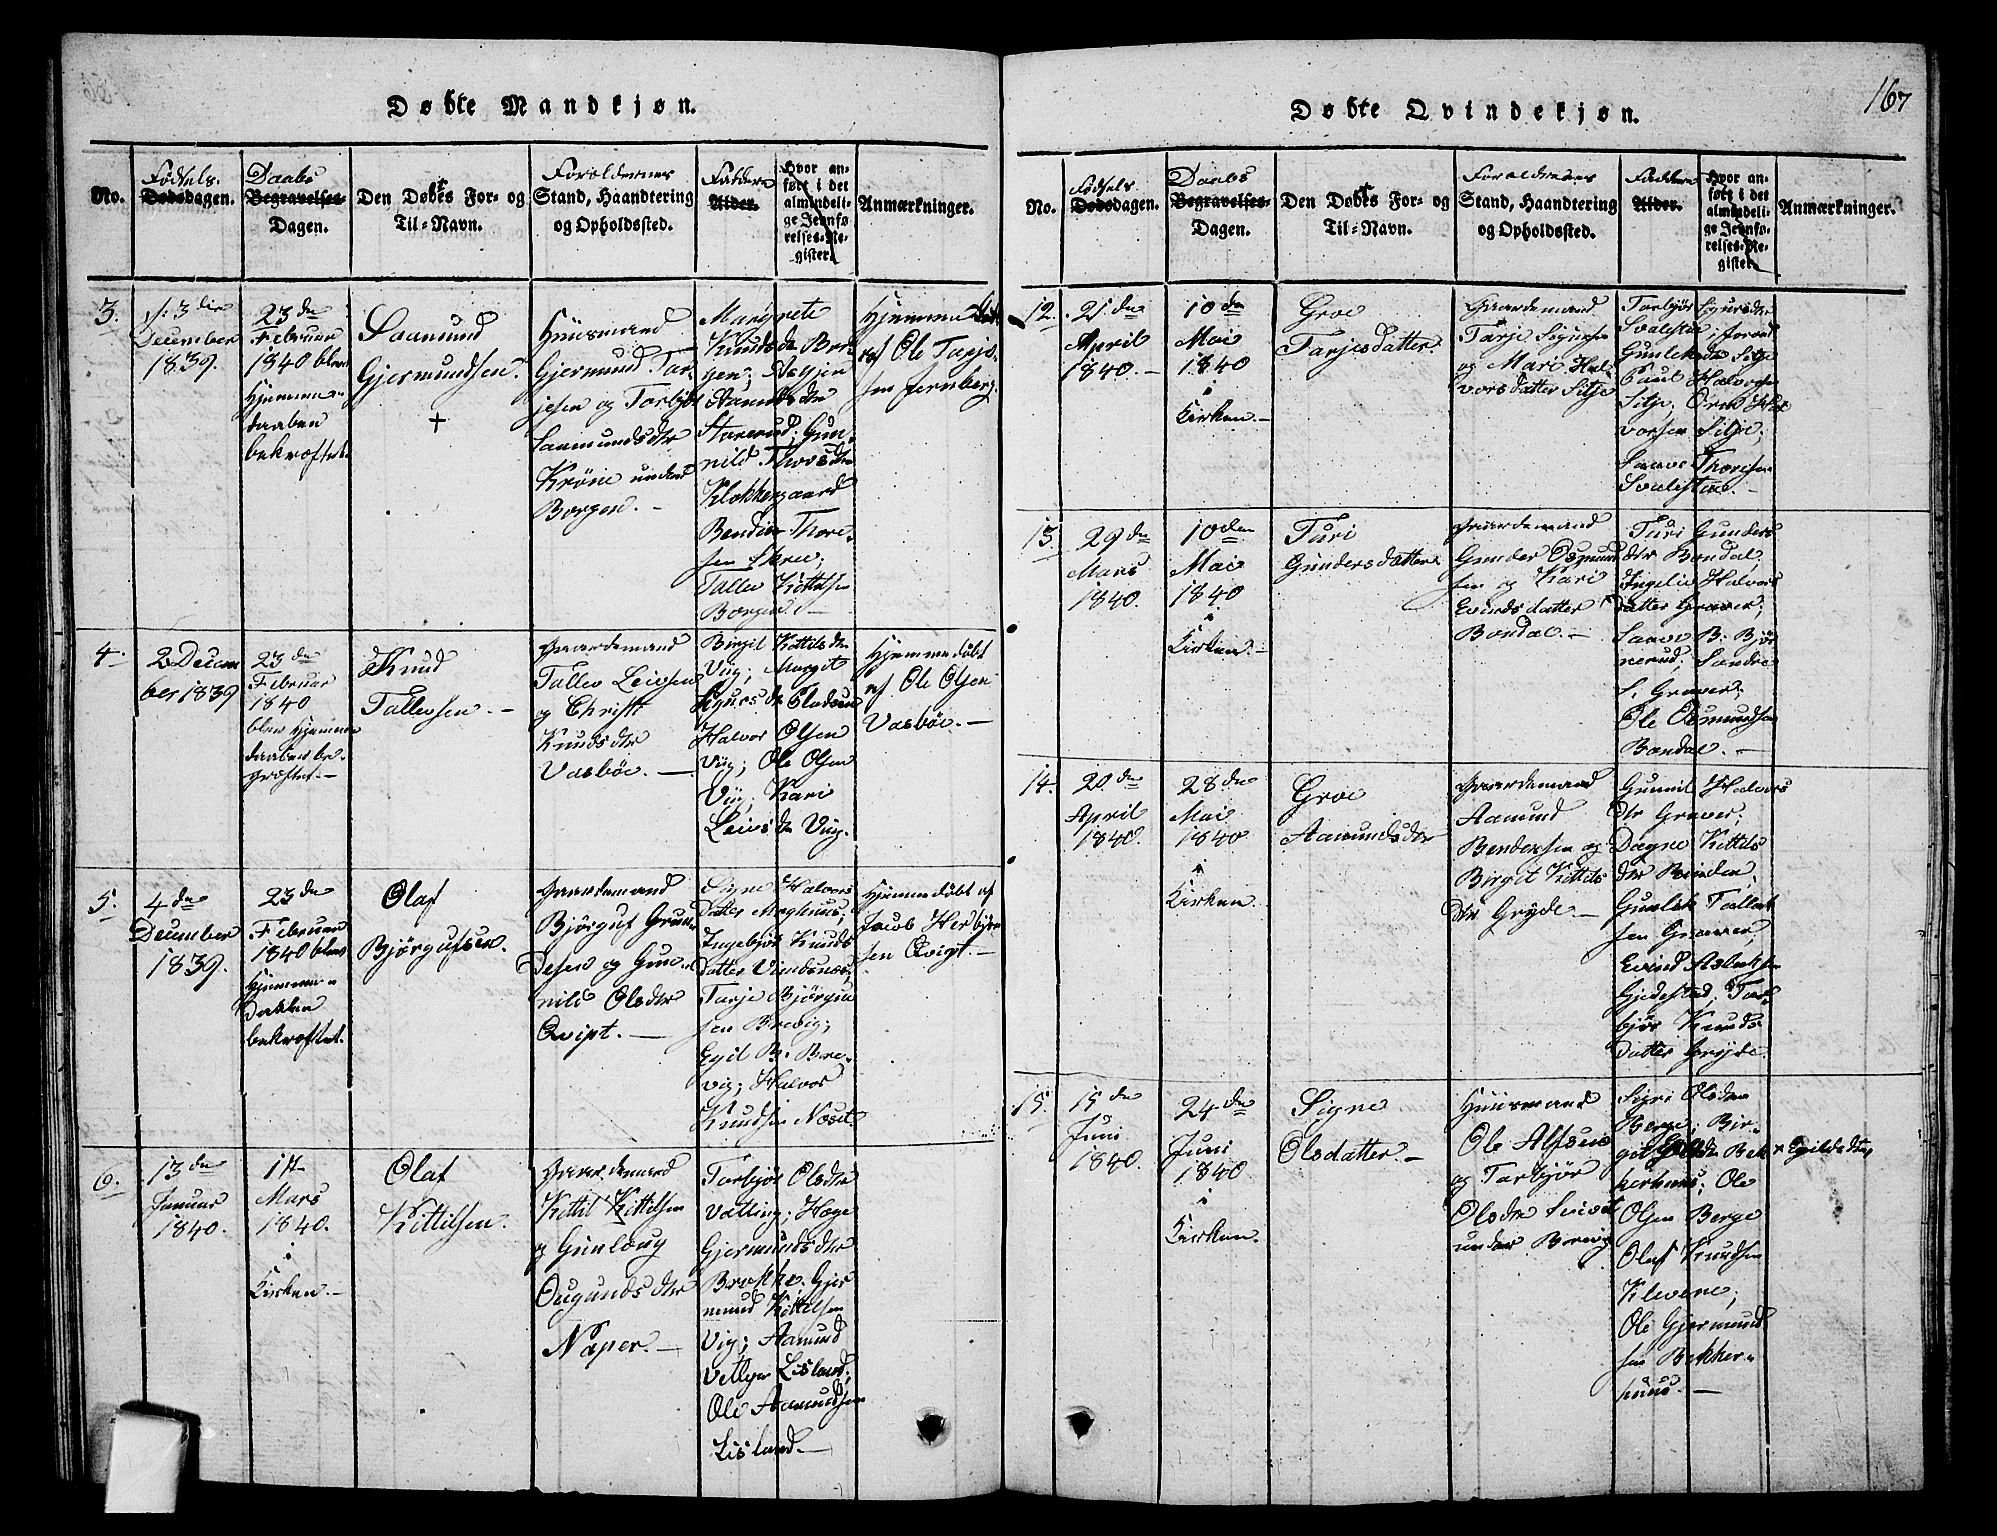 167
Døbte Mandkjøn.
No.
Fødsels-
Dødsdagen.
Daabs
Begravelses-
Dagen.
Den Døbtes For- og
Til-Navn.
Foreldrenes
Stand, Haandtering
og Opholdssted.
Faddere
Alder.
Hvor an-
ført i det
almindeli-
ge Jevnfø-
relses-Re-
gister.
Anmærkninger.
3.
December
1839.
23de
Februar
1840 blev
Hjemme-
daaben
bekræftet.
Saamund
Gjermundsen.
+
Huusmand
Gjermund Tar-
jesen og Torbjør
Saamundsdtr
Krône under
Borgen. -
Margrete
Knudsd. Bor-
gen;
Aamundsdtr
Starerud; Gun-
nild Thorsdtr
Klokkergaard
Bendic Thore-
sen Skree;
Tallev Kittelsen
Borgen. -
Hjemmedøbt
af Ole Tarje-
sen Jernberg.
4.
2 Decem
ber 1839
23de
Februar
1840
blev Hjemme
daaben be-
kræftet. -
Knud
Tallevsen. -
Gaardemand
Tallev Leivsen
og Christi
Knudsdtr
Vasbôe. -
Birgit Kittilsdtr
Viig; Margit
Sigursdtr
Halvor Olsen
Viig; Ole Olsen
Viig; Kari
Leivsdtr Viig.
Hjemmedøbt
af Ole Olsen
Vasbôe. -
5.
4de
December
1839.
23de
Februar
1840 blev
Hjemme-
daaben
bekræftet.
Olaf
Bjørgufsen.
Gaardemand
Bjørguf Grun-
desen og Gun-
nild Olsdtr
Qvipt. -
Signe Halvors
datter Maghuus;
Ingebjør Knuds
datter Vindsnæs;
Tarje Bjørgu
sen Brevig;
Egil B. Bre-
vig; Halvor
Knudsen Næset
Hjemmedøbt af
Jacob Herbjørn
sen Qvigt. -
6.
13de
Januar
1840.
1ste
Mars
1840.
i
Kirken. -
Olaf
Kittilsen.
Gaardemand
Kittil Kittilsen
og Gunlaug
Ougundsdtr
Næper. -
Torbjør Olsdtr
Vatting; Hæge
Gjermundsdtr
Brokke. Gjer
mund Kittelsen
Viig; Aamund
Vetlger Lisland;
Ole Aamundsen
Lisland. -
Døbte Qvindekjøn.
No.
Fødsels
Dødsdagen.
Daabs
Begravelses-
Dagen.
Den Døbtes For- og
Til-Navn.
Foreldrenes
Stand, Haandtering
og Opholdssted.
Faddere
Alder.
Hvor an-
ført i det
almindeli-
ge Jevnfø-
relses-Re-
gister.
Anmærkninger.
12.
21de
April
1840. -
10de
Mai
1840
i
Kirken. -
Groe
Tarjesdatter.
Gaardemand
Tarje Sigurse
og Mari Hal-
vorsdatter Sitje
Torbjør Sigursdtr
Svalestøe;
Gunlek
Paul Halvorsen
Sitje; Orm Hal
vorsen Sitje;
Saave Thoresen
Svalestøe. -
13.
29de
Mars
1840.
10den
Mai
1840
i
Kirken. -
Turi
Gundersdatter
Gaardemand
Gunder Osmund
sen og Kari
Evindsdatter
Bondal. -
Turi Gunders
dtr Bondal,
Ingelev Halvors
datter Graver;
Saave B. Bjør
nerud; Sandre
S. Graver.
Ole Osmundsen
Bondal. -
14.
20de
April
1840.
28de
Mai
1840
i
Kirken.
Groe
Aamundsdtr
Gaardemand
Aamund
Bendersen og
Birgit Kittils
dtr Grÿde. -
Gunnil Halvors
dtr Graver;
Dagne Kittils
dtr Rinden,
Gunlek Tallak
sen Graver;
Evind Aslaksen
Gjedestad; Tor
bjør Knuds
datter Grÿde.
15.
15de
Juni
1840.
24de
Juni
1840
i
Kirken.
Signe
Olsdatter. -
Huusmand
Ole Alfsen
og Torbjør
Olsdtr
under Brevig
Sigri Olsdtr
Berge; Bir-
git Bek-
kerhuus; Ole
Olsen Berge
Olaf Knudsen
Klevene;
Ole Gjermund
sen Bekker-
huus. -
x Egilsdtr